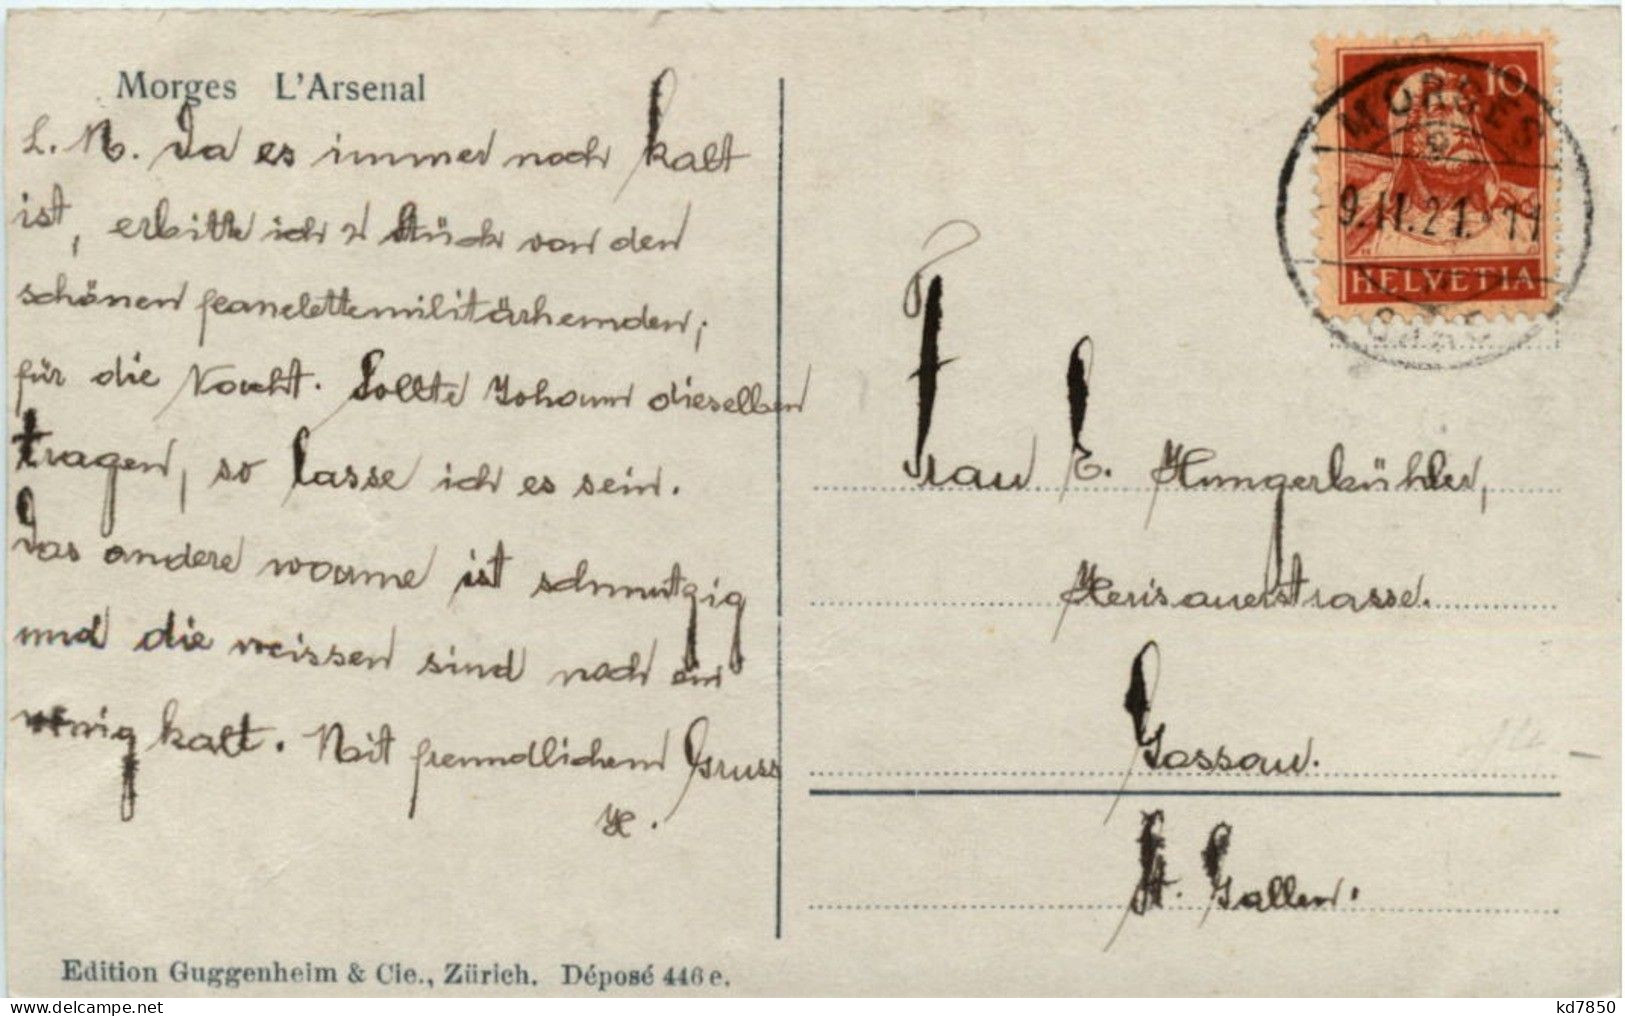 Morges L'Arsenal
L. M. Da es immer noch kalt
ist, erbitte ich 2 Stück von den
schönen feanelettemilitärhemden,
für die Nacht. Sollte Johann dieselben
tragen, so lasse ich es sein.
Das andere warme ist schmutzig
und die weissen sind noch ein
wenig kalt. Mit freundlichem Gruss
H.
Edition Guggenheim & Cie., Zürich. Déposé 446 e.
10
MORGES
9.II.21. 11
HELVETIA
Frau E. Hungerbühler,
Herisauerstrasse.
Gossau.
St. Gallen.
kd7850